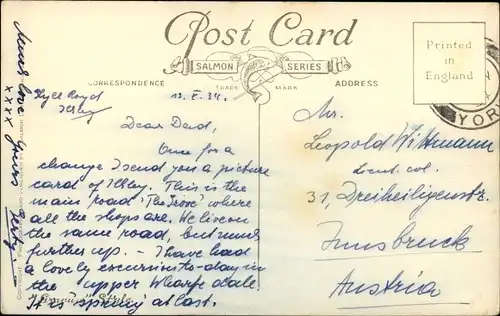 Post Card
SALMON SERIES
TRADE MARK
CORRESPONDENCE
ADDRESS
Printed
in
England
YOR
Ilkley
Dear Dad,
Once for a
change I send you a picture
card of Ilkley. This is the
main road 'The Grove' where
all the shops are. We live on
the same road, but much
further up. – I have had
a lovely excursion to-day in
the upper Wharfedale.
It is 'spring' at last.
Much love
xxxx Yours
Mr.
Leopold Wittmann
Lieut. col.
31, Dreiheiligenstr.
Innsbruck
Austria